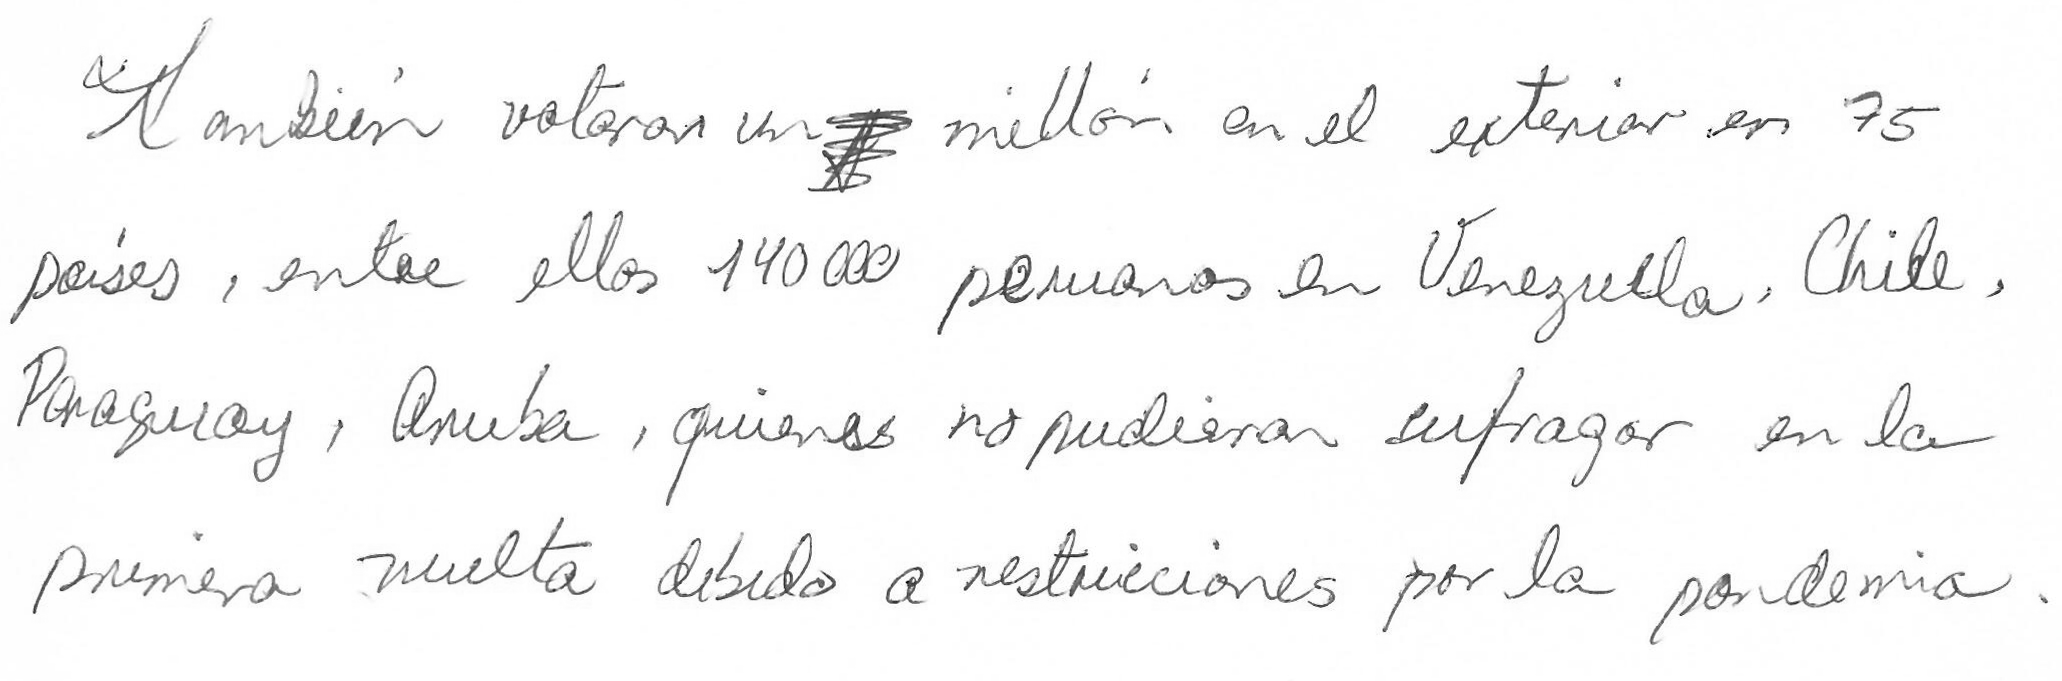 También votaron un millón en el exterior en 75
países, entre ellos 140 000 peruanos en Venezuela, Chile,
Paraguay, Aruba, quienes no pudieron sufragar en la
primera vuelta debido a restricciones por la pandemia.